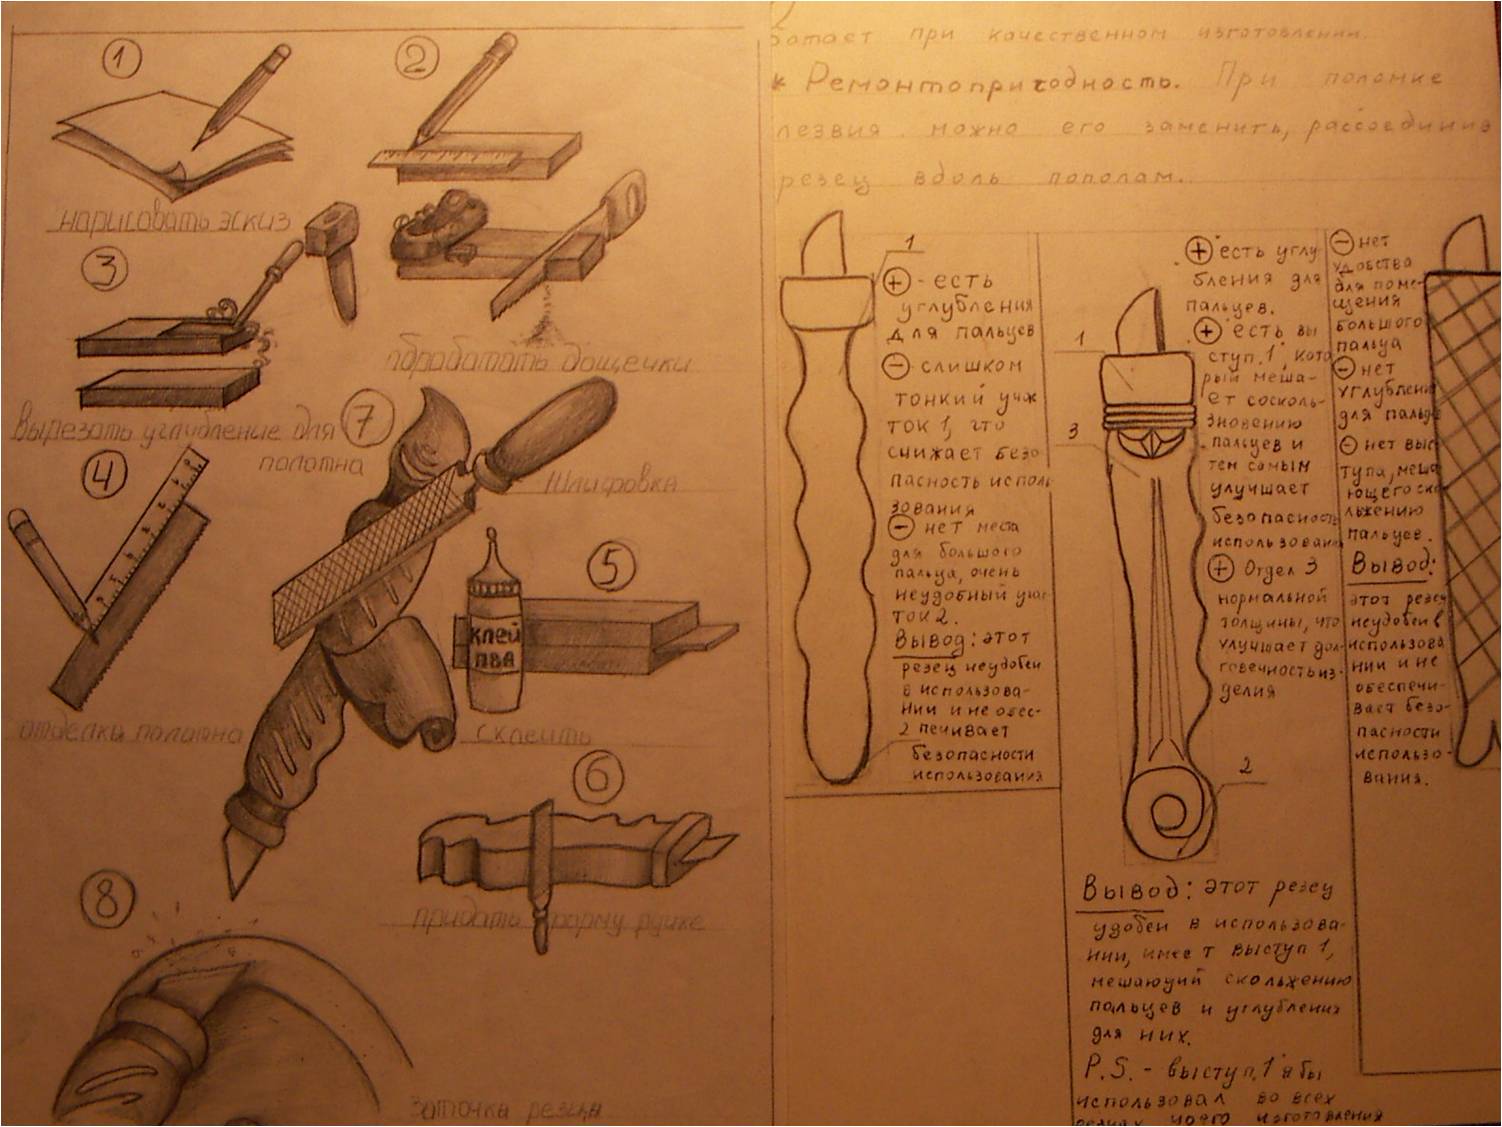 1
2
нарисовать эскиз
3
обработать дощечки
вырезать углубление для
полотна
7
шлифовка
4
5
КЛЕЙ
ПВА
отделка полотна
склеить
6
придать форму ручке
8
заточка резца
ботает при качественном изготовлении.
* Ремонтопригодность. При поломке
лезвия можно его заменить, рассоединив
резец вдоль пополам.
1
+ - есть
углубления
для пальцев
- - слишком
тонкий учас
ток 1, что
снижает безо
пасность исполь
зования
- нет места
для большого
пальца, очень
неудобный учас
ток 2.
Вывод: этот
резец неудобен
в использова-
нии и не обес-
2 печивает
безопасности
использования
1
3
2
+ есть углу
бления для
пальцев.
+ есть вы
ступ "1", кото
рый меша-
ет сосколь-
зновению
пальцев и
тем самым
улучшает
безопасность
использования
+ Отдел 3
нормальной
толщины, что
улучшает дол
говечность из-
делия
Вывод: этот резец
удобен в использова-
нии, имеет выступ 1,
мешающий скольжению
пальцев и углубления
для них.
P.S. - выступ "1" я бы
использовал во всех
моего изготовления
- нет
удобства
для поме-
щения
большого
пальца
- нет
углублени
для пальц
- нет выс
тупа, меша
ющего ско
льжению
пальцев.
Вывод:
этот резец
неудобен в
использова
нии и не
обеспечи-
вает безо-
пасности
использо-
вания.